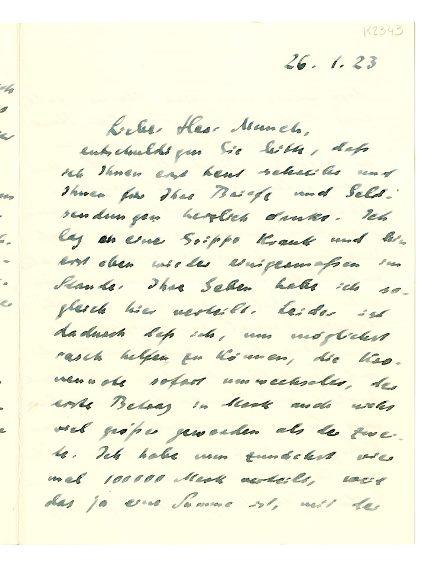 K2343
26. 1. 23
Lieber Herr Munch,
entschuldigen Sie bitte, daß
ich Ihnen erst heut schreibe und
Ihnen für Ihre Briefe und Geld-
sendungen herzlich danke. Ich
lag an einer Grippe krank und bin
erst eben wieder einigermaßen im
Stande. Ihre Gaben habe ich so-
gleich hier verteilt. Leider ist
dadurch daß ich, um möglichst
rasch helfen zu können, die Kro-
nennote sofort umwechselte, der
erste Betrag in Mark auch nicht
viel größer geworden als der zwei-
te. Ich habe nun zunächst vier
mal 100000 Mark verteilt, weil
das ja eine Summe ist, mit der